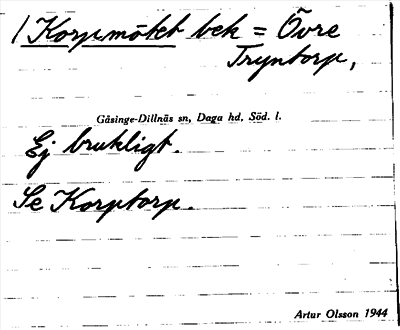 / Korpmötet bek = Övre
Tryntorp,
Gåsinge-Dillnäs sn, Daga hd, Söd. l.
Ej brukligt.
Se Korptorp.
Artur Olsson 1944